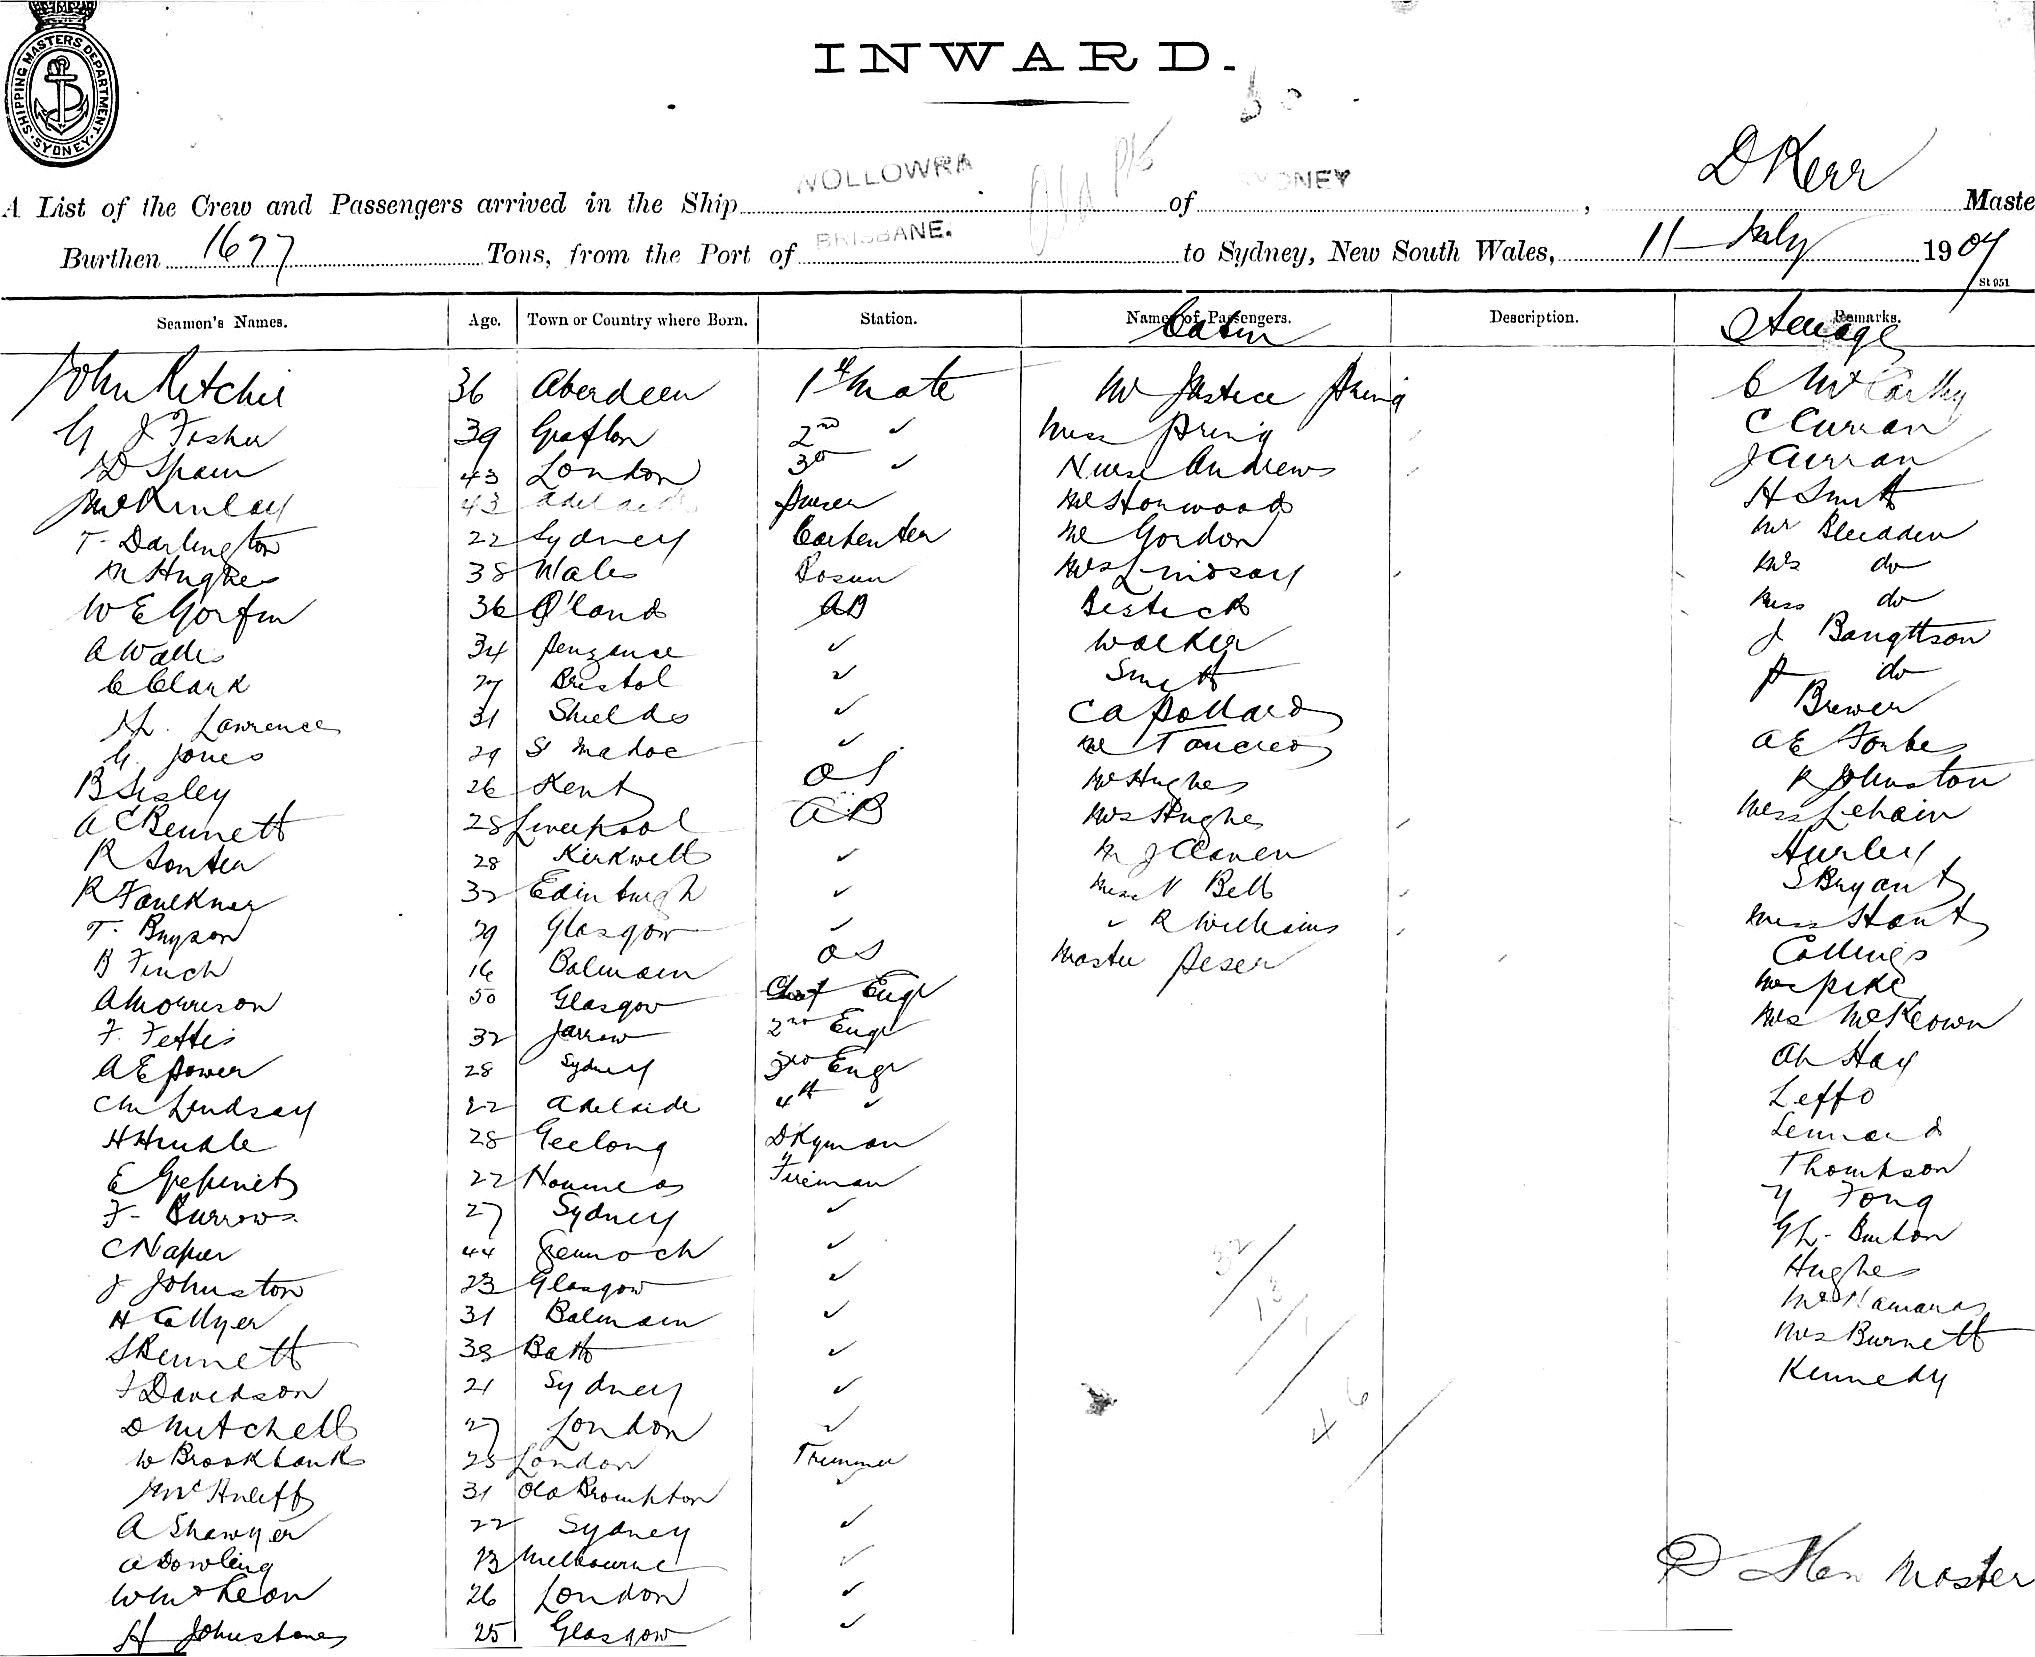 SHIPPING MASTERS DEPARTMENT
SYDNEY
INWARD.
D Kerr
A List of the Crew and Passengers arrived in the Ship WOLLOWRA of SYDNEY, Maste
Burthen 1677 Tons, from the Port of BRISBANE. to Sydney, New South Wales, 11 July 1907
St 951
Seamen's Names. Age. Town or Country where Born. Station. Names of Passengers. Description. Remarks.
Cabin Steerage
John Ritchie 36 Aberdeen 1st Mate Mr Justice Pring C McCarthy
G J Fisher 39 Grafton 2nd ✓ Miss Pring C Curran
D Spain 43 London 3rd ✓ Nurse Andrews J Curran
J McKinlay 43 Adelaide Purser Mr Stonwood H Smith
T. Darlington 22 Sydney Carpenter Mr Gordon Mr Bleadden
M Hughes 38 Wales Bosun Mrs Lindsay Mrs do
W E Gorfin 36 Q'land AB Bestick Miss do
A Wallis 34 Penzance ✓ Walker J Bangttson
C Clark 27 Bristol ✓ Smith P do
Lawrence 31 Shields ✓ C A Pollard Brewer
G. Jones 29 St Madoc ✓ Mr Tancred A E Forbes
B Sisley 26 Kent OS Mr Hughes R Johnston
A C Bennett 28 Liverpool AB Mrs Hughes Miss Lehain
R Souter 28 Kirkwell ✓ Mr J Claven Hurley
R Faulkner 32 Edinburgh ✓ Miss V Bell S Bryant
T. Bryson 29 Glasgow ✓ R Williams Miss Hant
B Finch 16 Balmain OS Master Peser Collings
A Morrison 50 Glasgow Chief Engr Mrs Pike
F. Fettis 32 Jarrow 2nd Engr Mrs McKeown
A E Power 28 Sydney 3rd Engr Ah Hay
C M Lindsay 22 Adelaide 4th ✓ Leffo
H Hindle 28 Geelong Dkyman Lennard
E 22 Noumea Fireman Thompson
F. Burrows 27 Sydney ✓ Y Fong
C Napier 44 ✓ G L. Burton
J Johnston 23 Glasgow ✓ Hughes
H Collyer 31 Balmain ✓ McNamara
S Bennett 38 Bath ✓ Mrs Burnett
J Davidson 21 Sydney ✓ Kennedy
D Mitchell 27 London ✓
W Brookbank 25 London Trimmer
31 Old Brompton ✓
A Shawyer 22 Sydney ✓
A Dowling 23 Melbourne ✓
W McKeon 26 London ✓
H Johnstone 25 Glasgow ✓
32
13
1
46
D Kerr Master